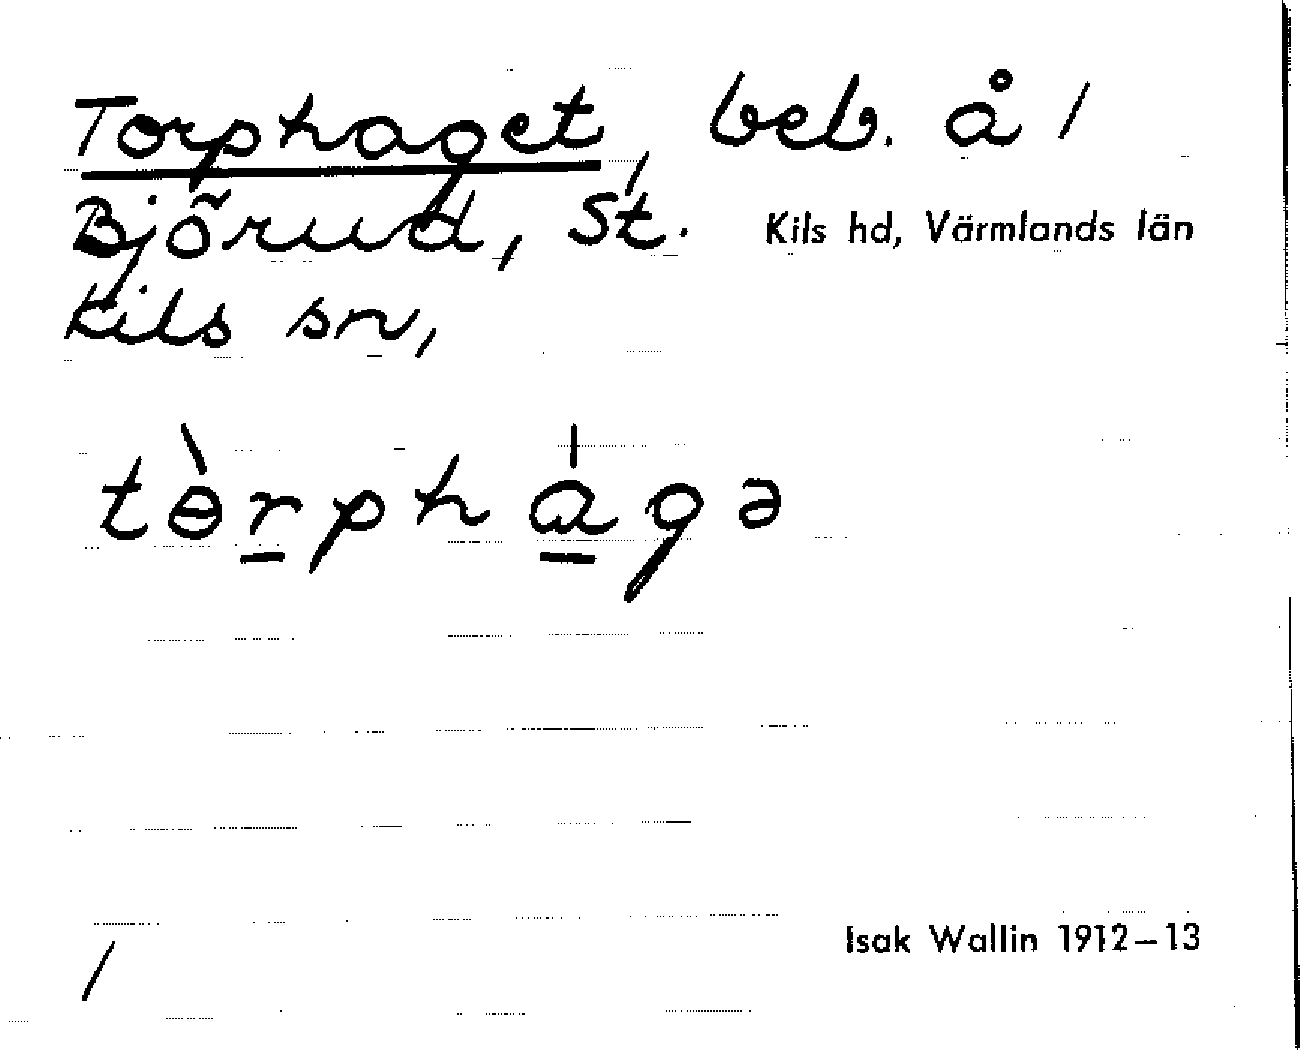 Torphaget, beb. å /
Björud, St. Kils hd, Värmlands län
Kils sn,
tɵ̀rphágə
/
Isak Wallin 1912–13